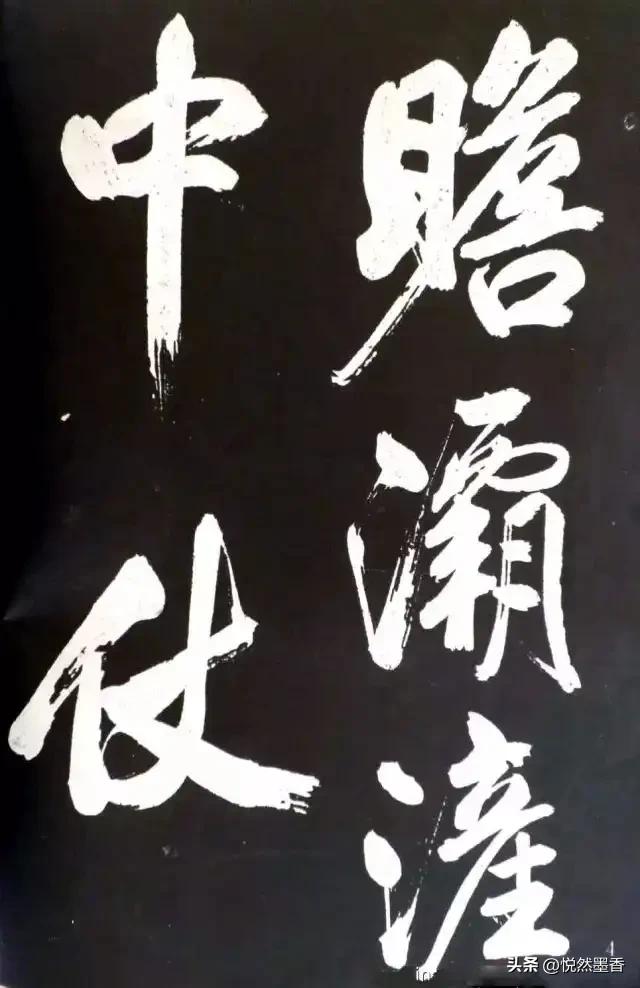 瞻灞滻
中仗
4
头条 @悦然墨香